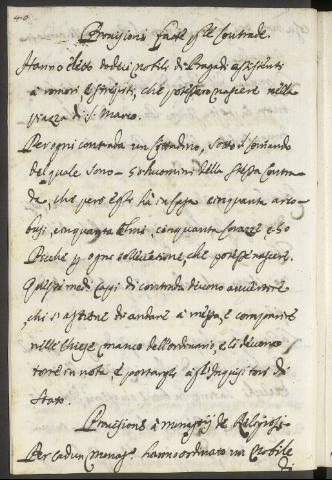 40
Provisioni fatte p le Contrade.
Hanno eletto dodeci nobili di Pregadi assistenti
à romori, e strepiti, che potessero nascere nella
piazza di S. Marco.
Per ogni contrada un Cittadino, sotto il comando
del quale sono 50 huomini della stessa Contra-
da, che però esso hà in casa cinquanta arco-
busi, cinquanta elmi, cinquanta corazze, e 50
Picche p ogni sollevatione, che potesse nascere.
Questi medi Capi di contrada devono avvertire
chi s'astiene di andare à messa, e comparire
nelle Chiese manco dell'ordinario, e li devono
tore in nota, e portargli à gl'Inquisitori di
Stato.
Provisioni à monasterij de Religiosi.
Per cadun monas. hanno ordinato un Nobile
di